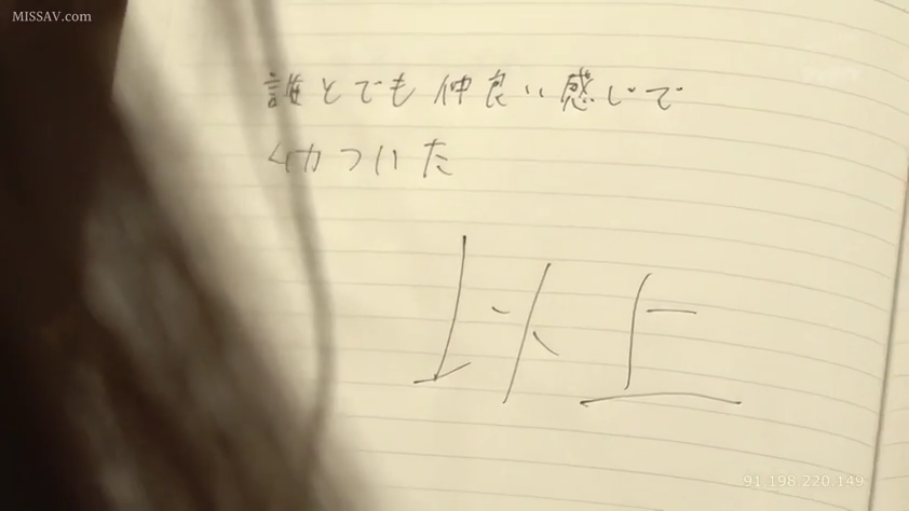 MISSAV.com
誰とでも仲良い感じで
ムカついた
以上
91.198.220.149